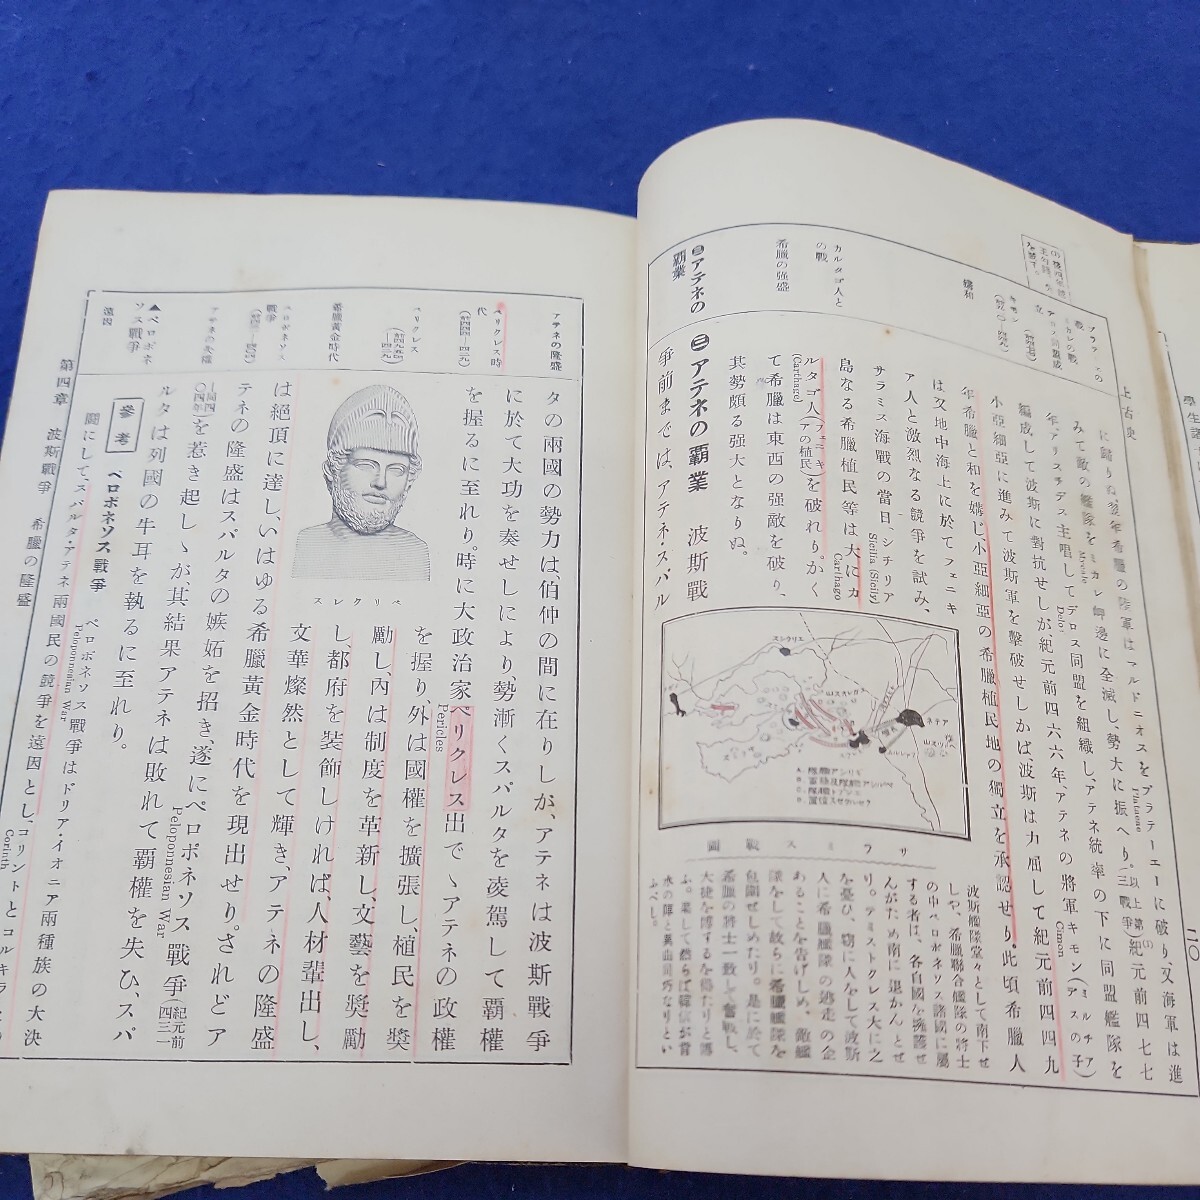 上古史
二〇
に歸りぬ。翌年希臘の陸軍はマルドニオスをプラテーエーに破り、又海軍は進
Plataeae
みて敵の艦隊をミカレ岬邊に全滅し、勢大に振へり。
Mycale
紀元前四七七
年、アリスチデス主唱してデロス同盟を組織し、アテネ統率の下に同盟艦隊を
Delos
編成して波斯に對抗せしが紀元前四六六年、アテネの將軍キモン
Cimon
小亞細亞に進みて波斯軍を擊破せしかば、波斯は力屈して紀元前四四九
年希臘と和を媾じ、小亞細亞の希臘植民地の獨立を承認せり。此頃希臘人
は又地中海上に於てフェニキ
ア人と激烈なる競爭を試み、
サラミス海戰の當日、シチリア
Sicilia (Sicily)
島なる希臘植民等は大にカ
Carthago
ルタゴ人(フェニキアの植民)を破れり。かく
(Carthage)
て希臘は東西の强敵を破り、
其勢頗る强大となりぬ。
カルタゴ人との戰
希臘の强盛
媾和
㊂アテネの覇業
㊂アテネの覇業 波斯戰
爭前までは、アテネ・スパル
サラミス戰圖
波斯艦隊堂々として南下せ
しや、希臘聯合艦隊の將士
の中ペロポネソス諸國に屬
する者は、各自國を擁護せ
んがため南に退かんとせ
り。テミストクレス大に之
を憂ひ、窃に人をして波斯
人に希臘艦隊の逃走の企
あることを告げしめ、敵艦
隊をして故らに希臘艦隊を
包圍せしめたり。是に於て
希臘の將士一致して奮戰し、
大捷を博するを得たりと傳
ふ。果して然らば韓信が背
水の陣と異曲同巧なりとい
ふべし。
アテネの隆盛
ペリクレス時代
ペリクレス
希臘黃金時代
ペロポネソス戰爭
アテネの失權
▲ペロポネソス戰爭
遠因
タの兩國の勢力は、伯仲の間に在りしが、アテネは波斯戰爭
に於て大功を奏せしにより、勢漸くスパルタを凌駕して覇權
を握るに至れり。時に大政治家ペリクレス出でゝアテネの政權
Pericles
を握り、外は國權を擴張し、植民を奬
勵し、內は制度を革新し、文藝を奬勵
し、都府を裝飾しければ、人材輩出し、
文華燦然として輝き、アテネの隆盛
は絕頂に達し、いはゆる希臘黃金時代を現出せり。されどア
テネの隆盛はスパルタの嫉妬を招き、遂にペロポネソス戰爭(紀元前四三一
Peloponnesian War
―同四〇四年)を惹き起しゝが、其結果アテネは敗れて覇權を失ひ、スパ
ルタは列國の牛耳を執るに至れり。
ペリクレス
參考 ペロポネソス戰爭 ペロポネソス戰爭はドリア・イオニア兩種族の大決
Peloponnesian War
鬪にして、スパルタ・アテネ兩國民の競爭を遠因とし、コリントとコルキラ
Corinth
第四章 波斯戰爭 希臘の隆盛